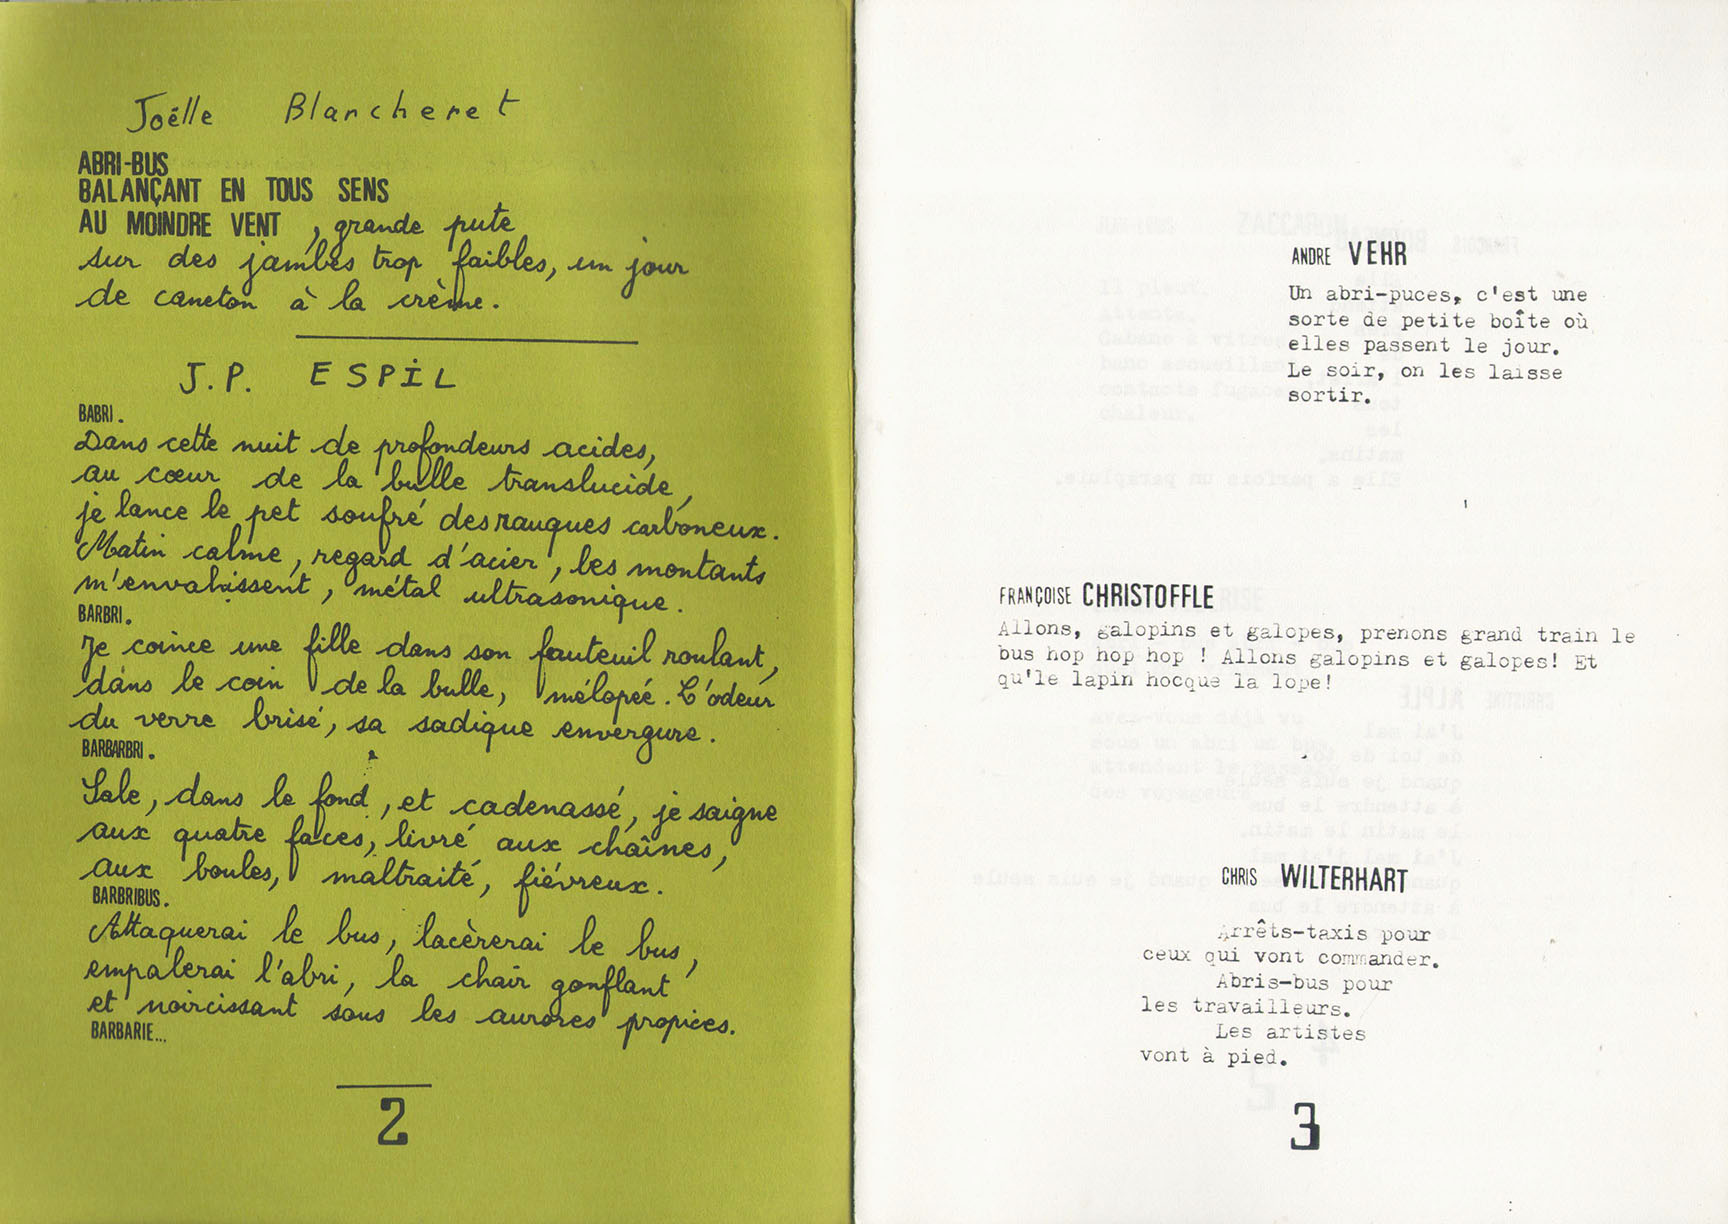 Joëlle Blancheret
ABRI-BUS
BALANÇANT EN TOUS SENS
AU MOINDRE VENT, grande pute
sur des jambes trop faibles, un jour
de caneton à la crème.
J.P. ESPIL
BABRI.
Dans cette nuit de profondeurs acides,
au cœur de la bulle translucide,
je lance le pet soufré des rauques carboneux.
Matin calme, regard d'acier, les montants
m'envahissent, métal ultrasonique.
BARBRI.
Je coince une fille dans son fauteuil roulant,
dans le coin de la bulle, mélopée. L'odeur
du verre brisé, sa sadique envergure.
BARBARBRI.
Sale, dans le fond, et cadenassé, je saigne
aux quatre faces, livré aux chaînes,
aux boules, maltraité, fiévreux.
BARBRIBUS.
Attaquerai le bus, lacèrerai le bus,
empalerai l'abri, la chair gonflant
et noircissant sous les aurores propices.
BARBARIE...
2
ANDRE VEHR
Un abri-puces, c'est une
sorte de petite boîte où
elles passent le jour.
Le soir, on les laisse
sortir.
FRANÇOISE CHRISTOFFLE
Allons, galopins et galopes, prenons grand train le
bus hop hop hop ! Allons galopins et galopes! Et
qu'le lapin hocque la lope!
CHRIS WILTERHART
Arrêts-taxis pour
ceux qui vont commander.
Abris-bus pour
les travailleurs.
Les artistes
vont à pied.
3